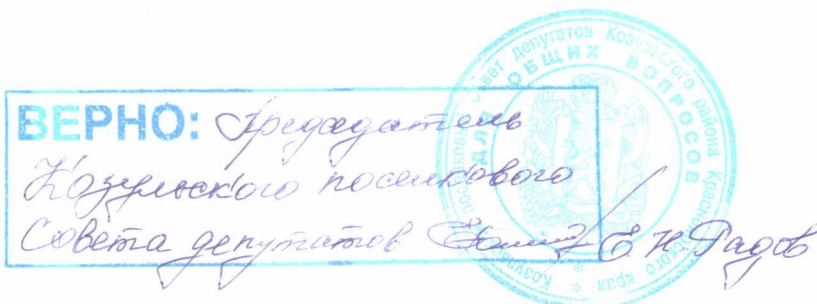 ВЕРНО: Председатель
Козульского поселкового
Совета депутатов Е.Н. Гадов
Совет депутатов Козульского района Красноярского края
ДЛЯ ОБЩИХ ВОПРОСОВ